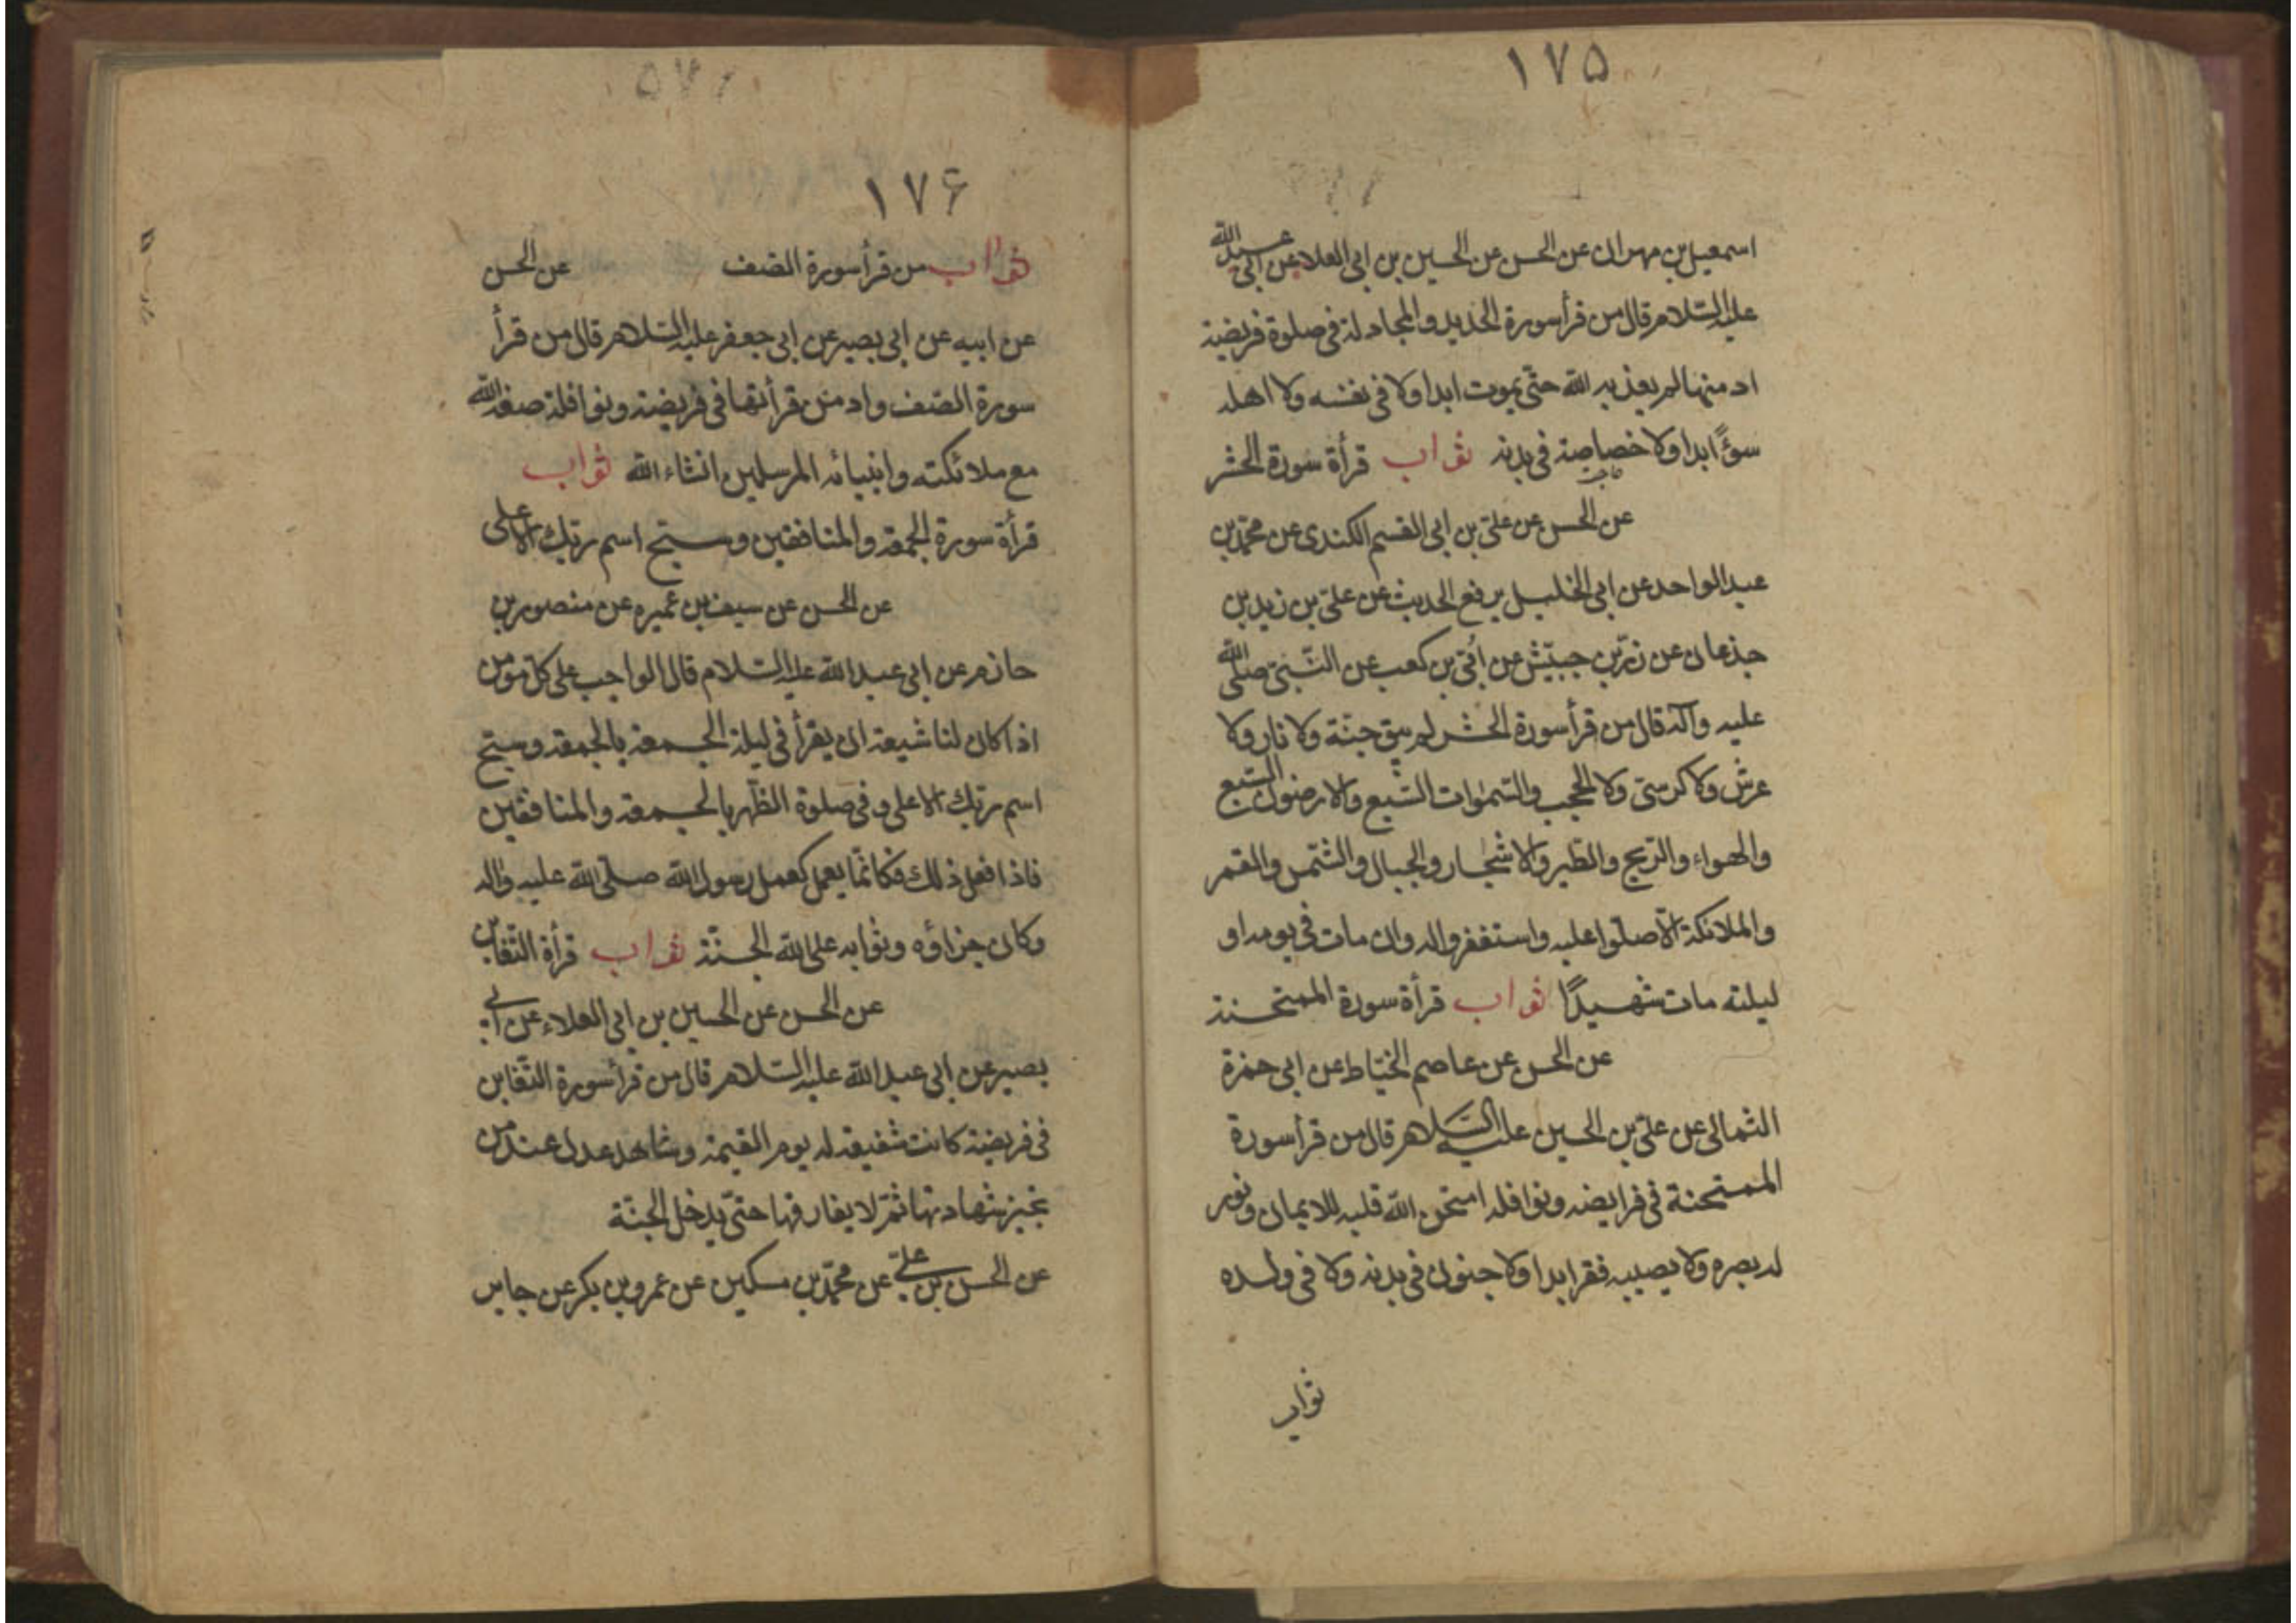 ١٧۵
اسمعيل بن مهران عن الحسن عن الحسين بن ابى العلا عن ابى عبد الله
عليه السّلام قال من قرأ سورة الحديد والمجادلة فى صلوة فريضة
ادمنها لم يعذبه الله حتّى يموت ابدا ولا فى نفسه ولا اهله
سؤً ابدا ولا خصاصة فى بدنه ثواب قرأة سورة الحشر
عن الحسن عن علىّ بن ابى القسم الكندى عن محمّد بن
عبد الواحد عن ابى الخليل يرفع الحديث عن علىّ بن زيد بن
جذعان عن زرّ بن حبيّش عن اُبىّ بن كعب عن النّبىّ صلّى الله
عليه وآله قال من قرأ سورة الحشر لم يبق جنّة ولا نار ولا
عرش ولا كرسّى ولا الحجب والسّموات السّبع والارضون السّبع
والهواء والرّيح والطّير والاشجار والجبال والشّمس والقمر
والملائكة الّا صلّوا عليه واستغفروا له وان مات فى يومه او
ليلته مات شهيدًا ثواب قرأة سورة الممتحنة
عن الحسن عن عاصم الخيّاط عن ابى حمزة
الثمالى عن علىّ بن الحسين عليه السّلام قال من قرأ سورة
الممتحنة فى فرايضه ونوافله امتحن الله قلبه للايمان ونور
له بصره ولا يصيبه فقر ابدا ولا جنون فى بدنه ولا فى ولده
ثواب
١٧۶
ثواب من قرأ سورة الصّف عن الحسن
عن ابيه عن ابى بصير عن ابى جعفر عليه السّلام قال من قرأ
سورة الصّف وادمن قرأتها فى فريضة ونوافلة صفه الله
مع ملائكته وانبيائه المرسلين انشاء الله ثواب
قرأة سورة الجمعة والمنافقين وسبّح اسم ربّك الاعلى
عن الحسن عن سيف بن عميره عن منصور بن
حازم عن ابى عبد الله عليه السّلام قال الواجب على كلّ مؤمن
اذا كان لنا شيعة ان يقرأ فى ليلة الجمعة بالجمعة وسبّح
اسم ربّك الاعلى وفى صلوة الظّهر بالجمعة والمنافقين
فاذا فعل ذلك فكانّما يعمل كعمل رسول الله صلّى الله عليه واله
وكان جزاؤه وثوابه على الله الجنّة ثواب قرأة التّغابن
عن الحسن عن الحسين بن ابى العلاء عن ابى
بصير عن ابى عبد الله عليه السّلام قال من قرأ سورة التّغابن
فى فريضة كانت شفيعة له يوم القيمة وشاهد عدل عند من
يجيز شهادتها ثمّ لا يفارقها حتّى يدخل الجنّة
عن الحسن بن علىّ عن محمّد بن مسكين عن عمرو بن بكر عن جابر